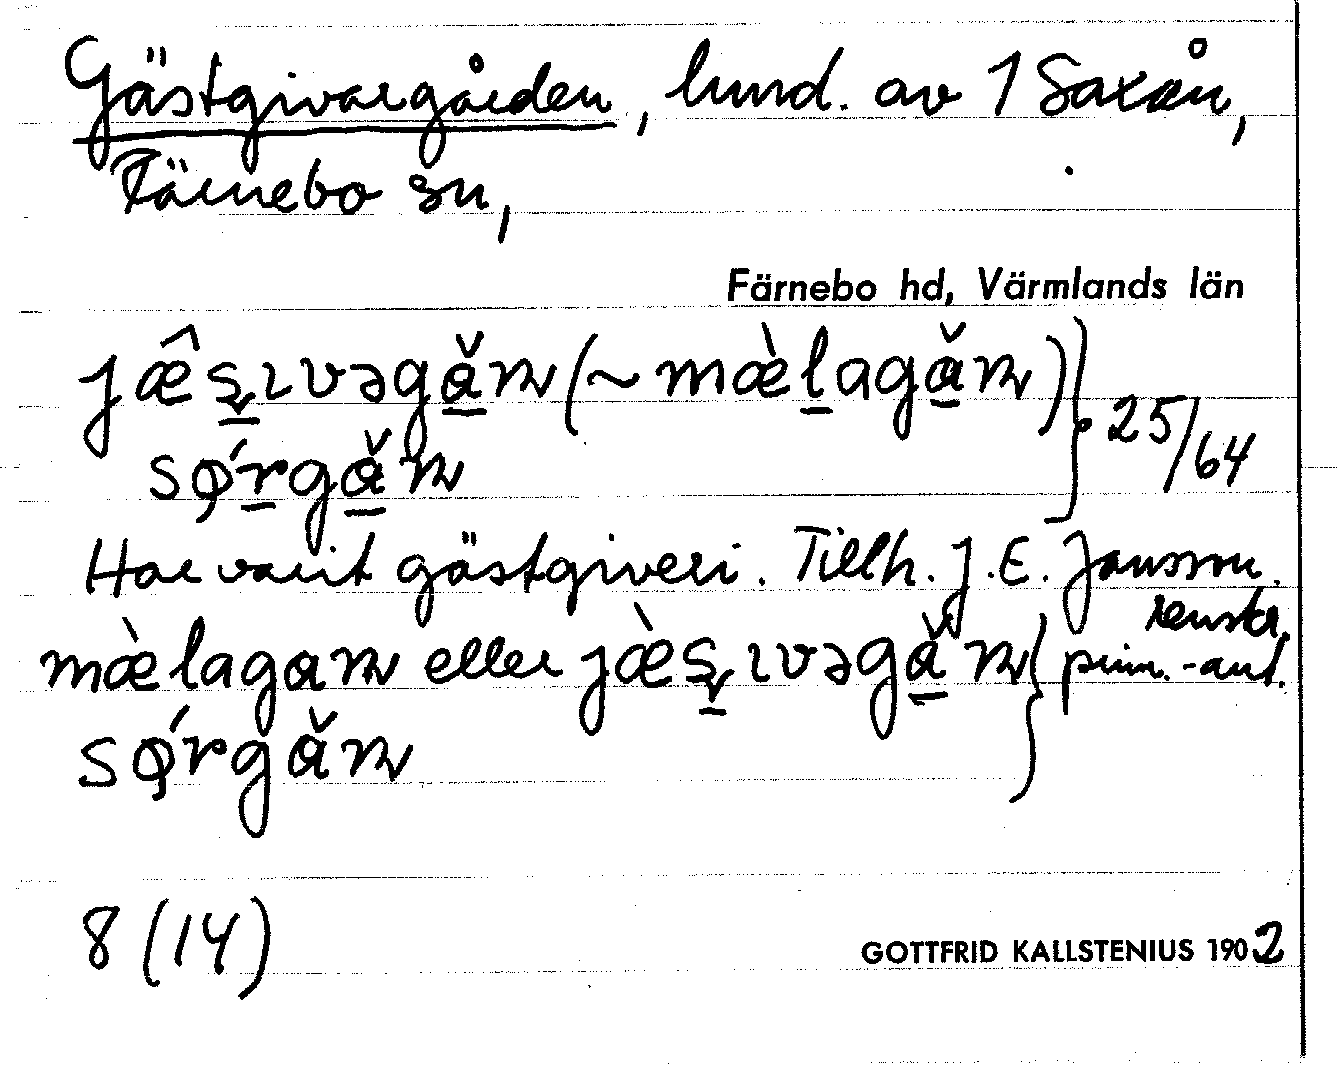 Gästgivargården, lund. av 1 Saxån,
Färnebo sn,
Färnebo hd, Värmlands län
jæ̂s̱ɩvəgå̱̌n (~ mæ̀ḻagå̱̌n) } 25/64
sǿṟgå̱̌n
Har varit gästgiveri. Tillh. J. E. Jansson.
mæ̀lagan eller jæ̀s̱ɩvəgå̱̌n } renskr. prim.-ant.
sǿrgǎn
8 (14)
GOTTFRID KALLSTENIUS 1902